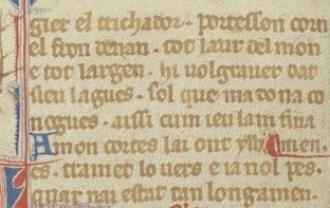 gier el trichador. portesson corn
el fron denan. tot laur del mon
e tot largen. hi uolgrauer dat
sieu lagues. sol que ma dona co
nogues. aissi cum ieu lam fina
Amon cortes lai ont ylh men.
es. tramet lo uers e ia nol pes.
quar nai estat tan longamen.